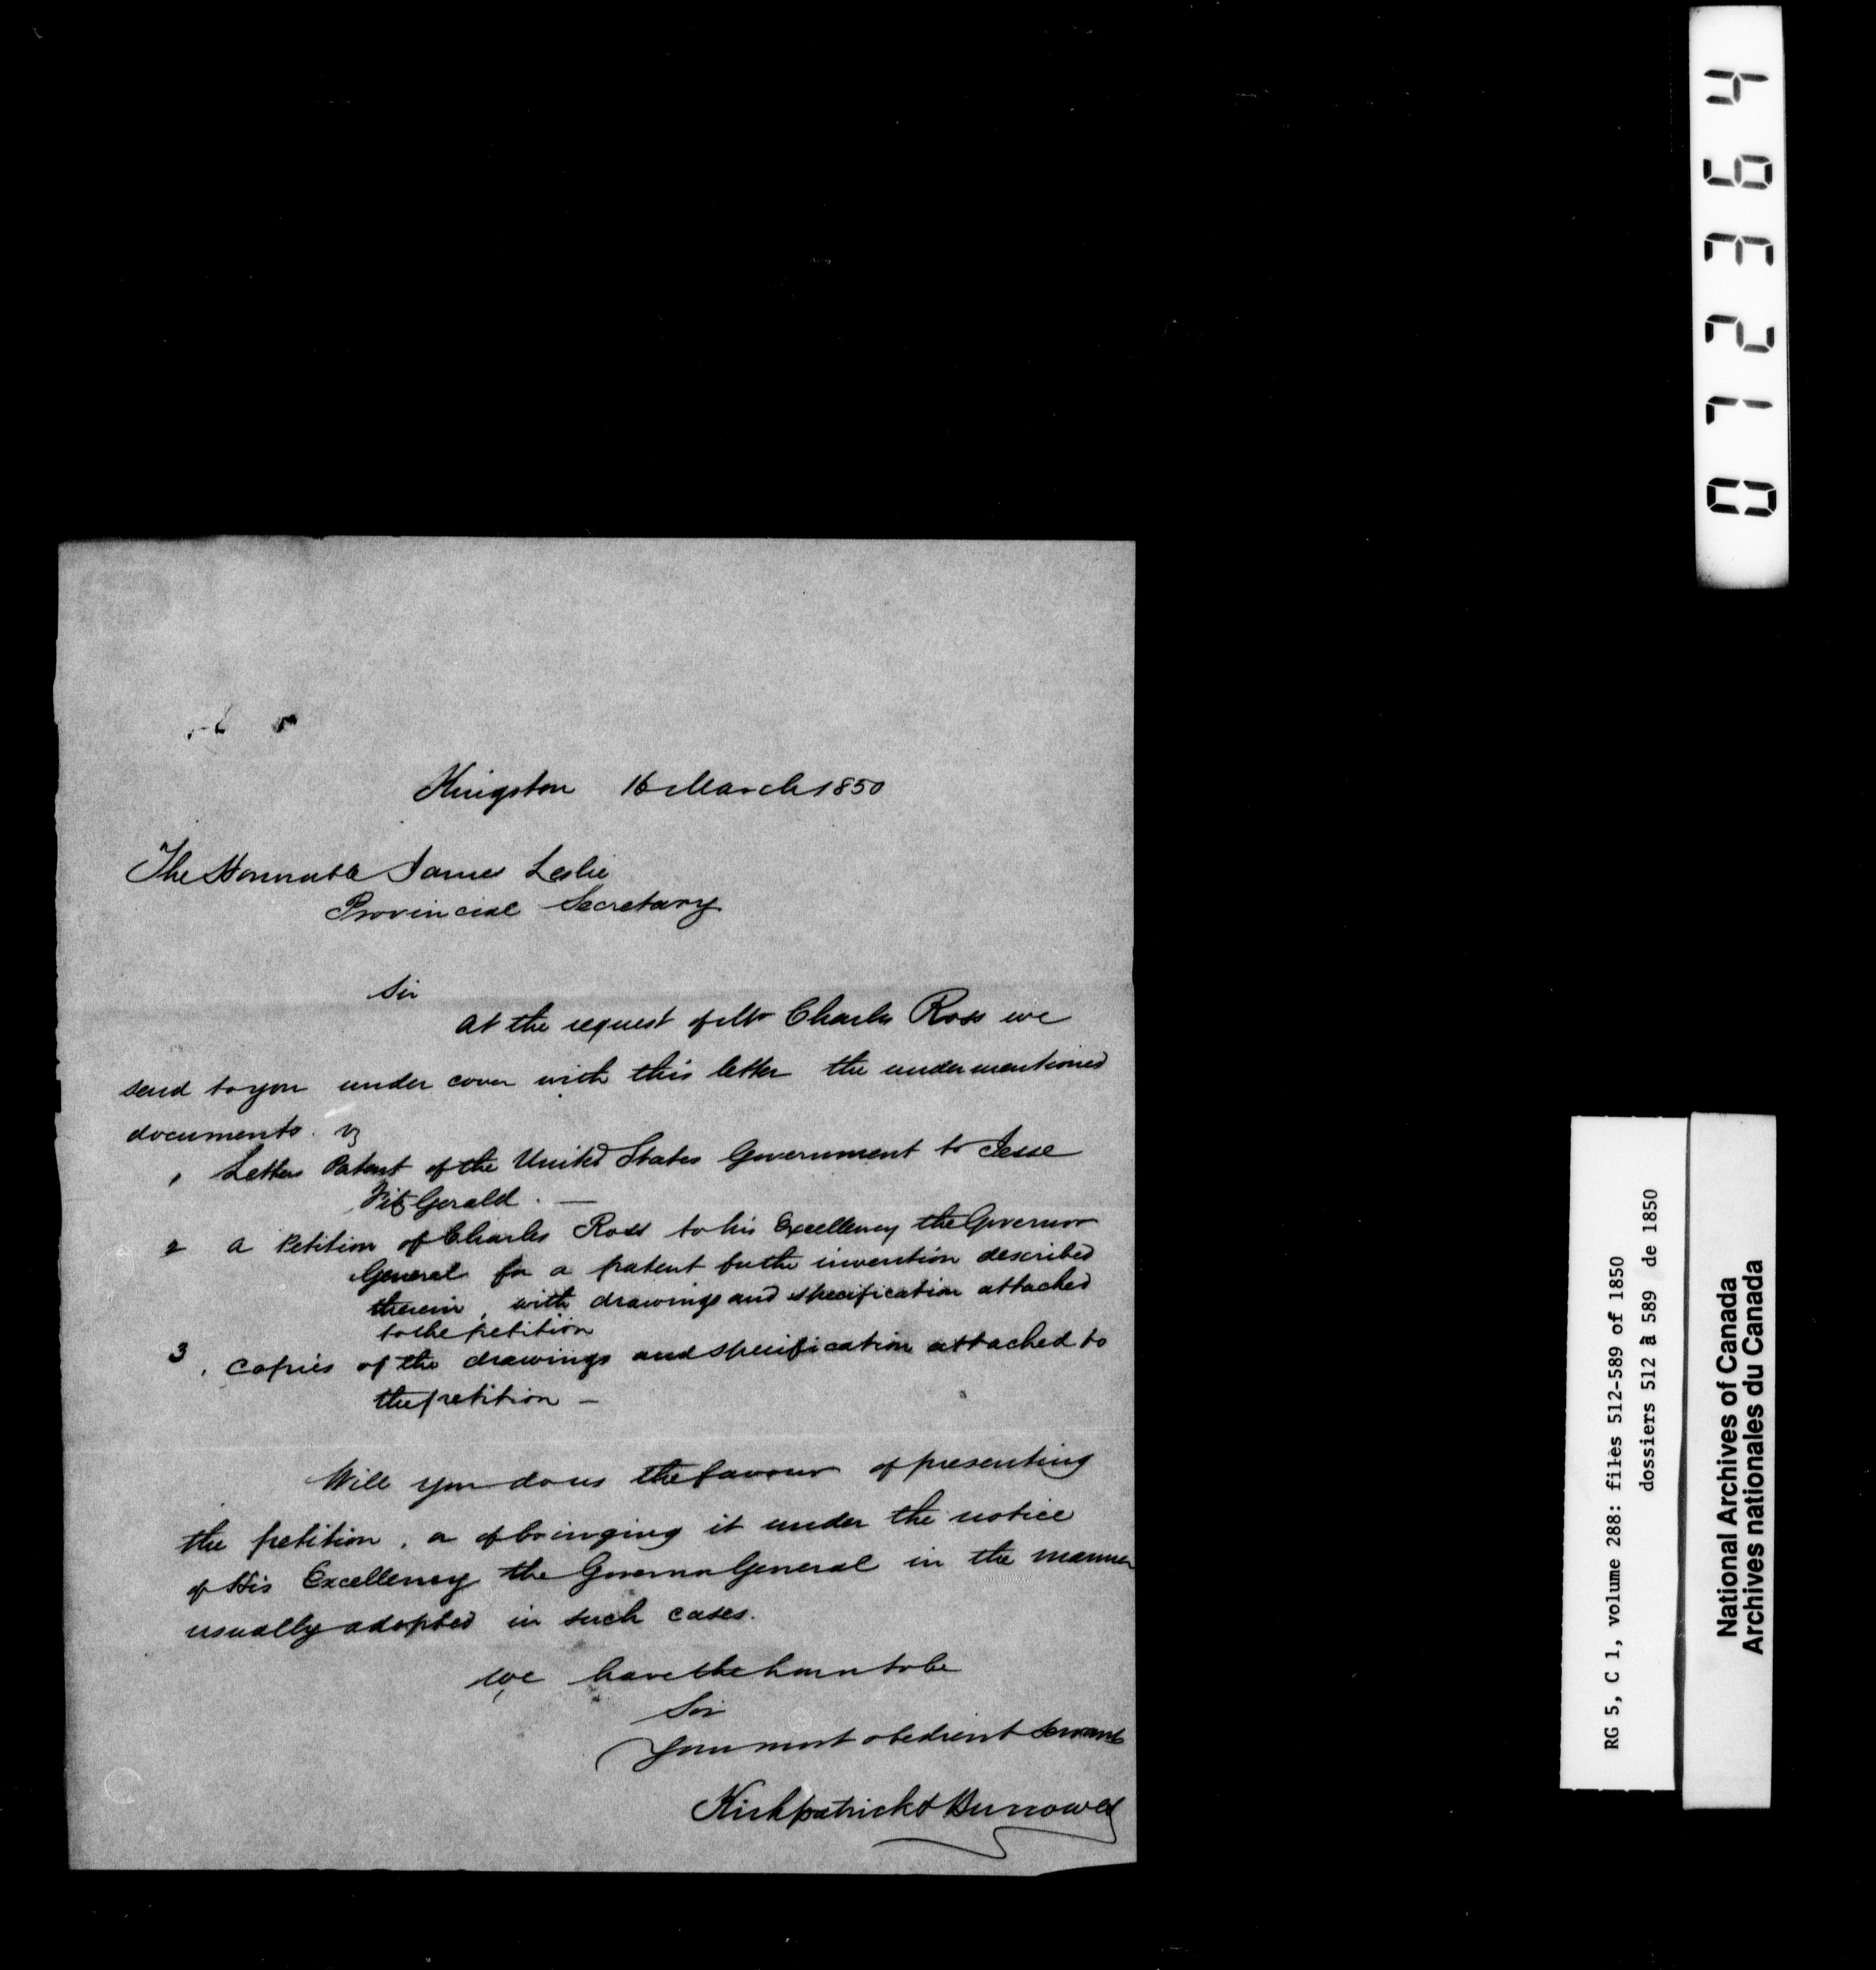 Kingston 16 March 1850
The Honorable James Leslie
Provincial Secretary
Sir
At the request of Mr Charles Ross we
send to you under cover with this letter the undermentioned
documents. viz
1 Letters Patent of the United States Government to Jesse
FitzGerald. —
2 a Petition of Charles Ross to his Excellency the Governor
General for a patent for the invention described
therein, with drawings and specification attached
to the petition
3. Copies of the drawings and specification attached to
the petition —
Will you do us the favour of presenting
the petition, or of bringing it under the notice
of His Excellency the Governor General in the manner
usually adopted in such cases.
We have the honor to be
Sir
Your most obedient Servants
Kirkpatrick & Burrowes
072364
RG 5, C 1, volume 288: files 512-589 of 1850
dossiers 512 à 589 de 1850
National Archives of Canada
Archives nationales du Canada